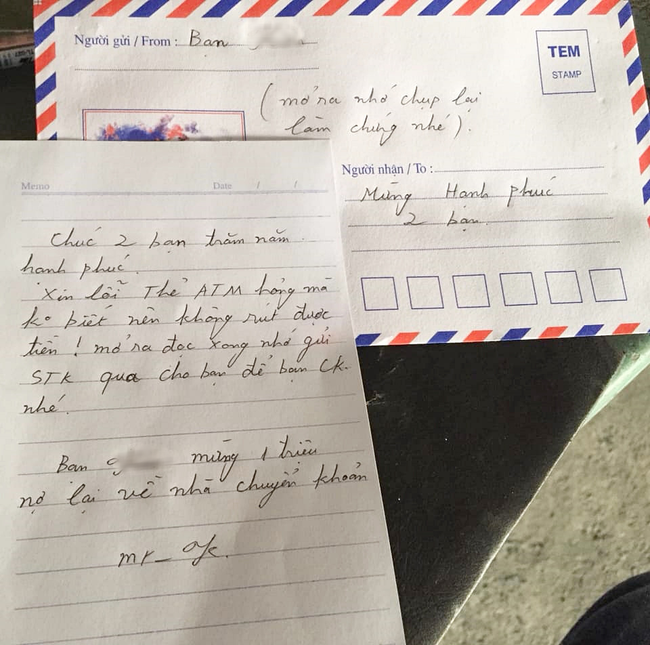 Người gửi / From : Bạn
TEM
STAMP
( mở ra nhớ chụp lại
làm chứng nhé ).
Người nhận / To :
Mừng Hạnh phúc
2 bạn
Memo Date / /
Chúc 2 bạn trăm năm
hạnh phúc.
Xin lỗi Thẻ ATM hỏng mà
ko biết nên không rút được
tiền ! mở ra đọc xong nhớ gửi
STK qua cho bạn để bạn CK.
nhé.
Bạn mừng 1 triệu
nợ lại về nhà chuyển khoản
mr_ ok.